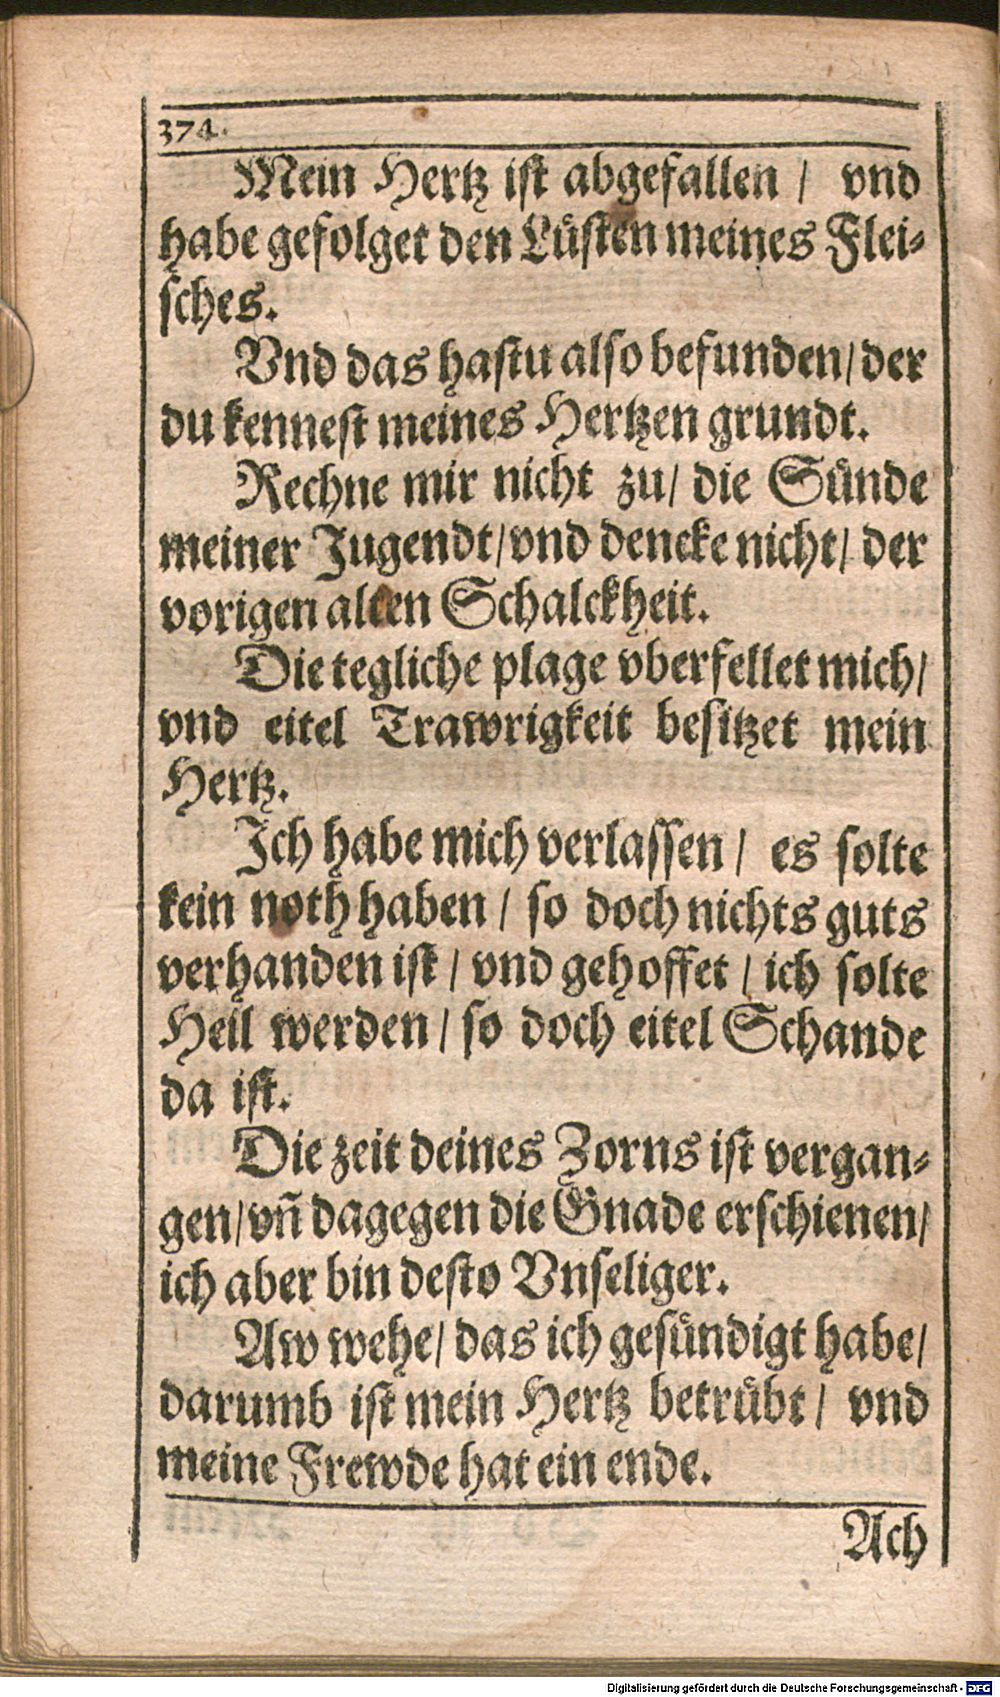 374.
Mein Hertz ist abgefallen / vnd
habe gefolget den Lüsten meines Flei-
sches.
Vnd das hastu also befunden / der
du kennest meines Hertzen grundt.
Rechne mir nicht zu / die Sünde
meiner Jugendt / vnd dencke nicht / der
vorigen alten Schalckheit.
Die tegliche plage vberfellet mich /
vnd eitel Trawrigkeit besitzet mein
Hertz.
Ich habe mich verlassen / es solte
kein noth haben / so doch nichts guts
verhanden ist / vnd gehoffet / ich solte
Heil werden / so doch eitel Schande
da ist.
Die zeit deines Zorns ist vergan-
gen / vñ dagegen die Gnade erschienen /
ich aber bin desto Vnseliger.
Aw wehe / das ich gesündigt habe /
darumb ist mein Hertz betrübt / vnd
meine Frewde hat ein ende.
Ach
Digitalisierung gefördert durch die Deutsche Forschungsgemeinschaft - DFG